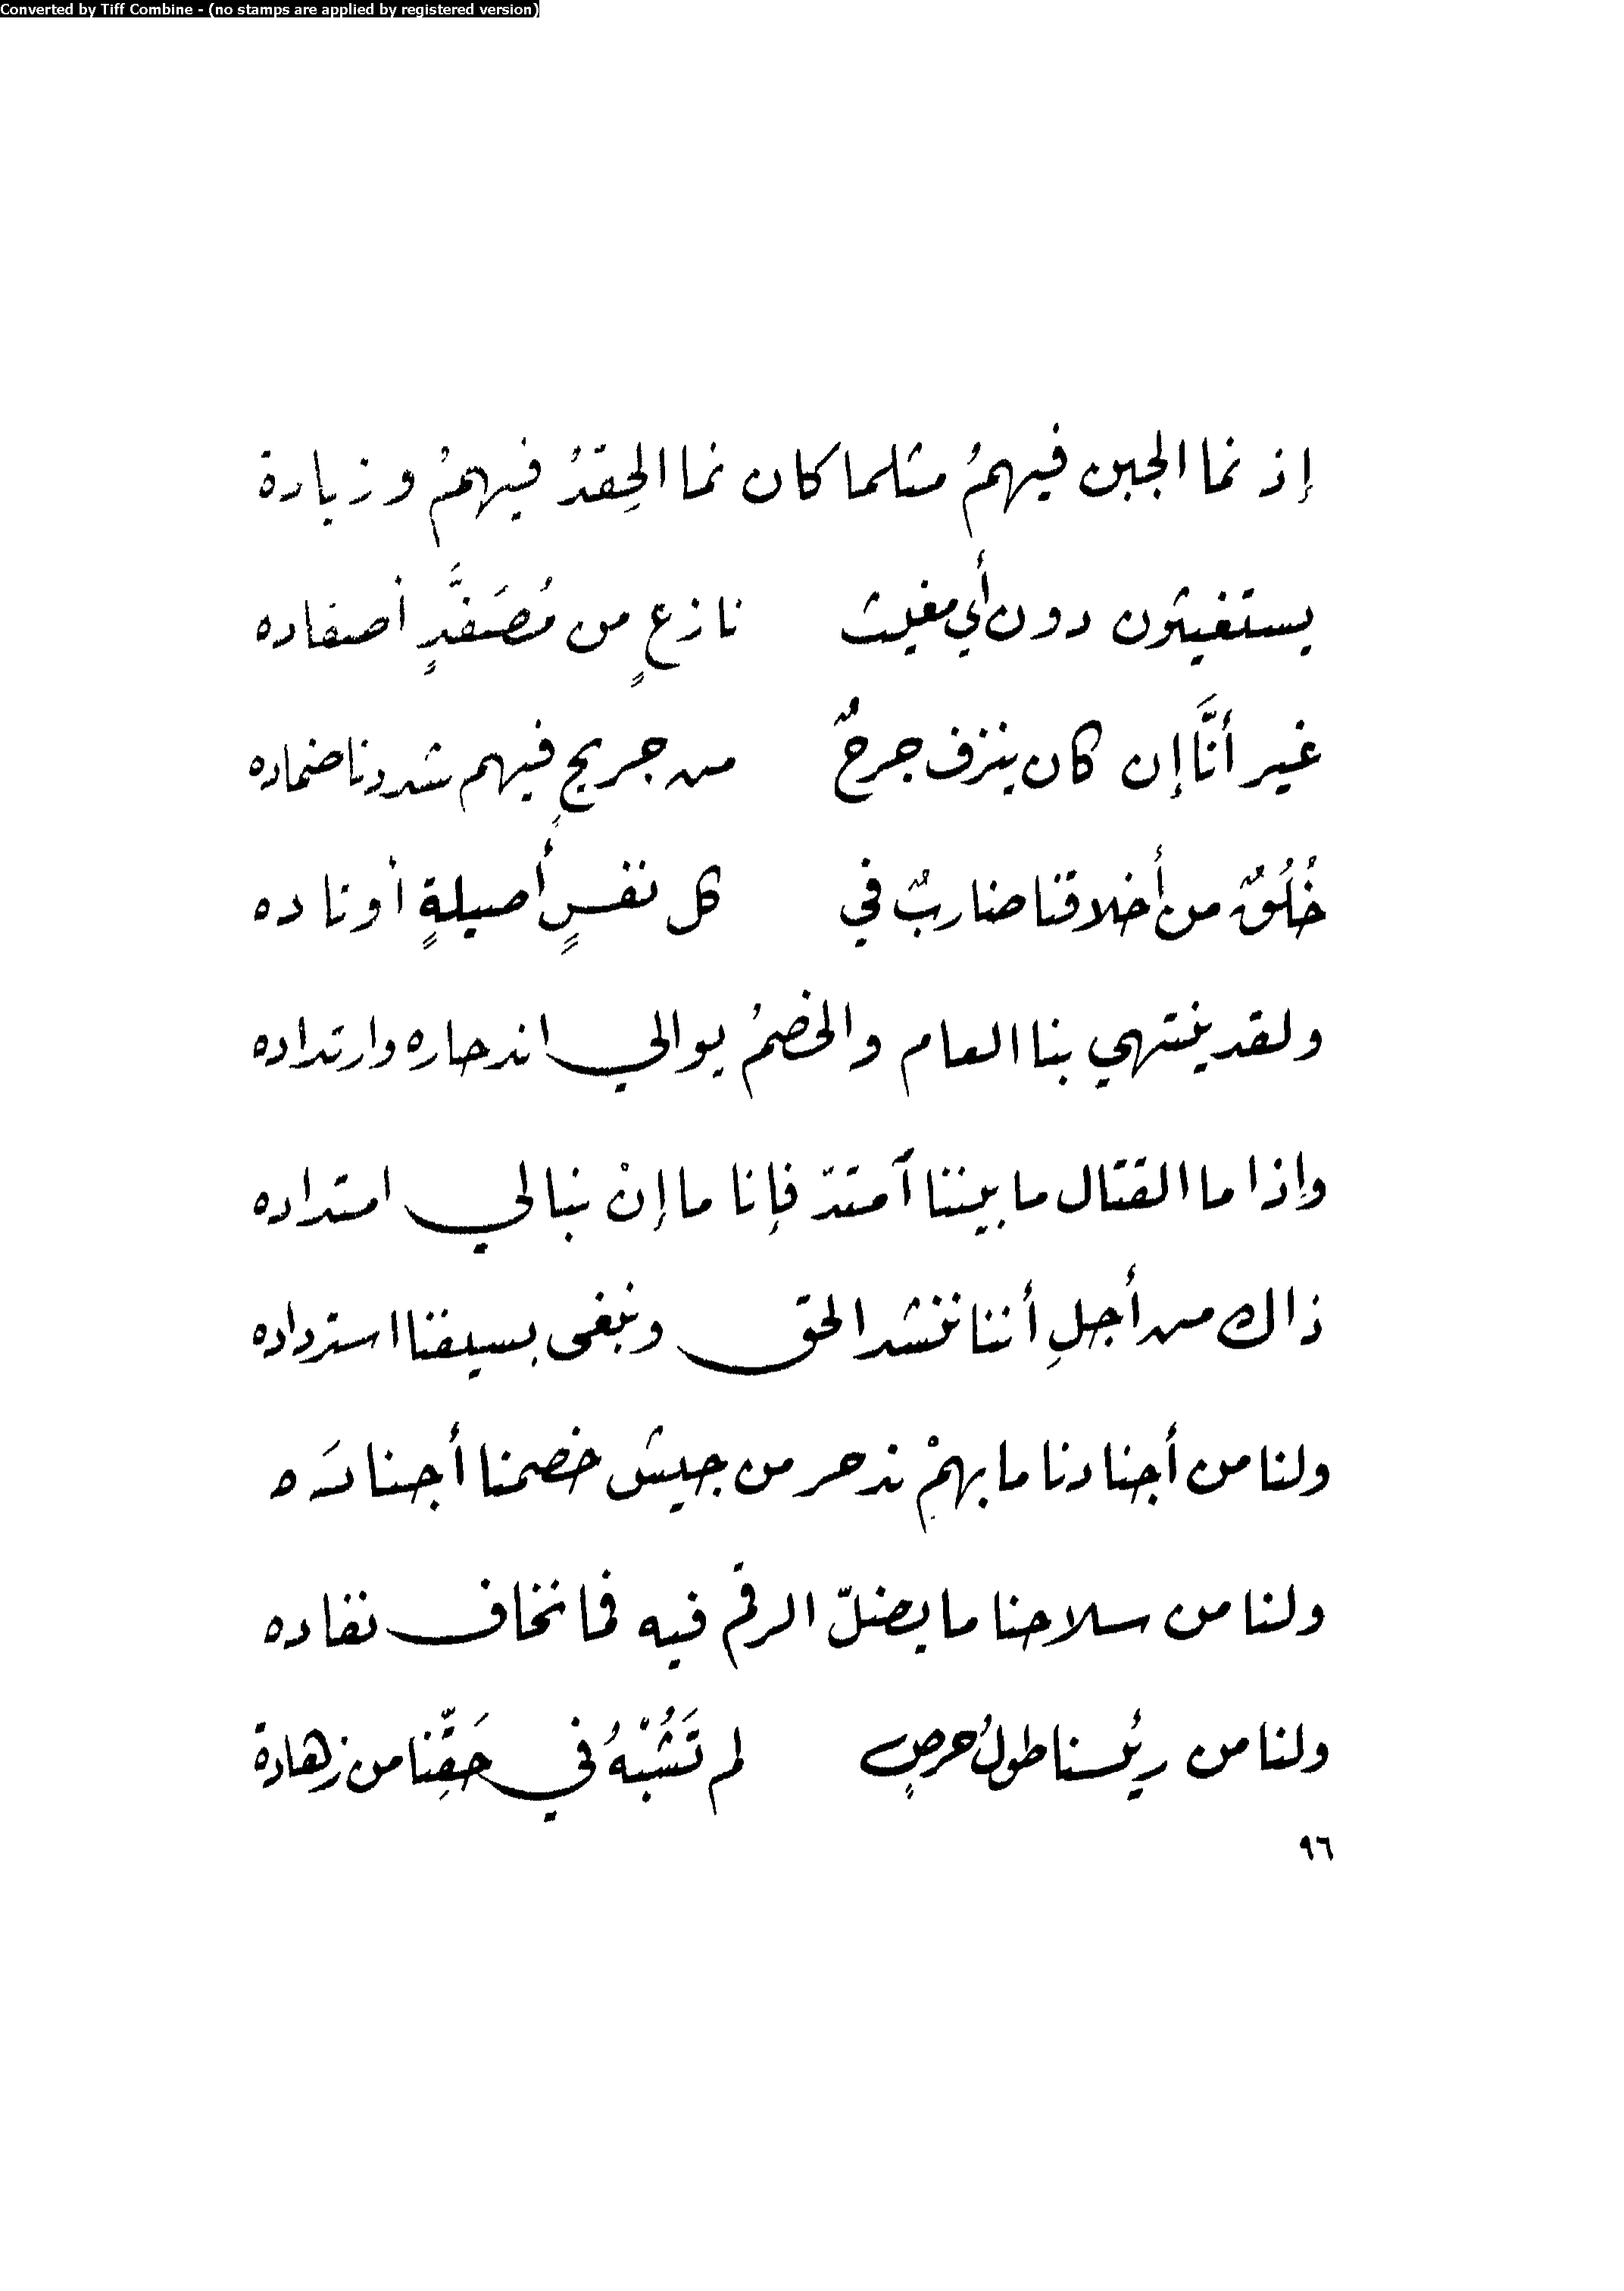 Converted by Tiff Combine - (no stamps are applied by registered version)
إذ نما الجبن فيهمُ مثلما كان نما الحِقدُ فيهمُ وزيادة
يستغيثون دون أي مغيث نازعٍ من مُصَفَّدٍ أصفاده
غير أنَّا إن كان ينزف جرحٌ من جريحٍ فيهم شددنا ضماده
خُلُقٌ من أخلاقنا ضاربٌ في كل نفسٍ أصيلةٍ أوتاده
ولقد ينتهي بنا العام والخصمُ يوالي اندحاره وارتداده
وإذا ما القتال ما بيننا آمتدّ فإنا ما إنْ نبالي امتداده
ذاك من أجلِ أننا ننشد الحق ونبغى بسيفنا استرداده
ولنا من أجنادنا ما بهمْ ندحر من جيش خصمنا أجنادَه
ولنا من سلاحنا ما يضلّ الرقم فيه فما نخاف نفاده
ولنا من ريُسنا طولُ حرصٍ لم تَشُبْهُ في حَقِّنا من زهادة
٩٦